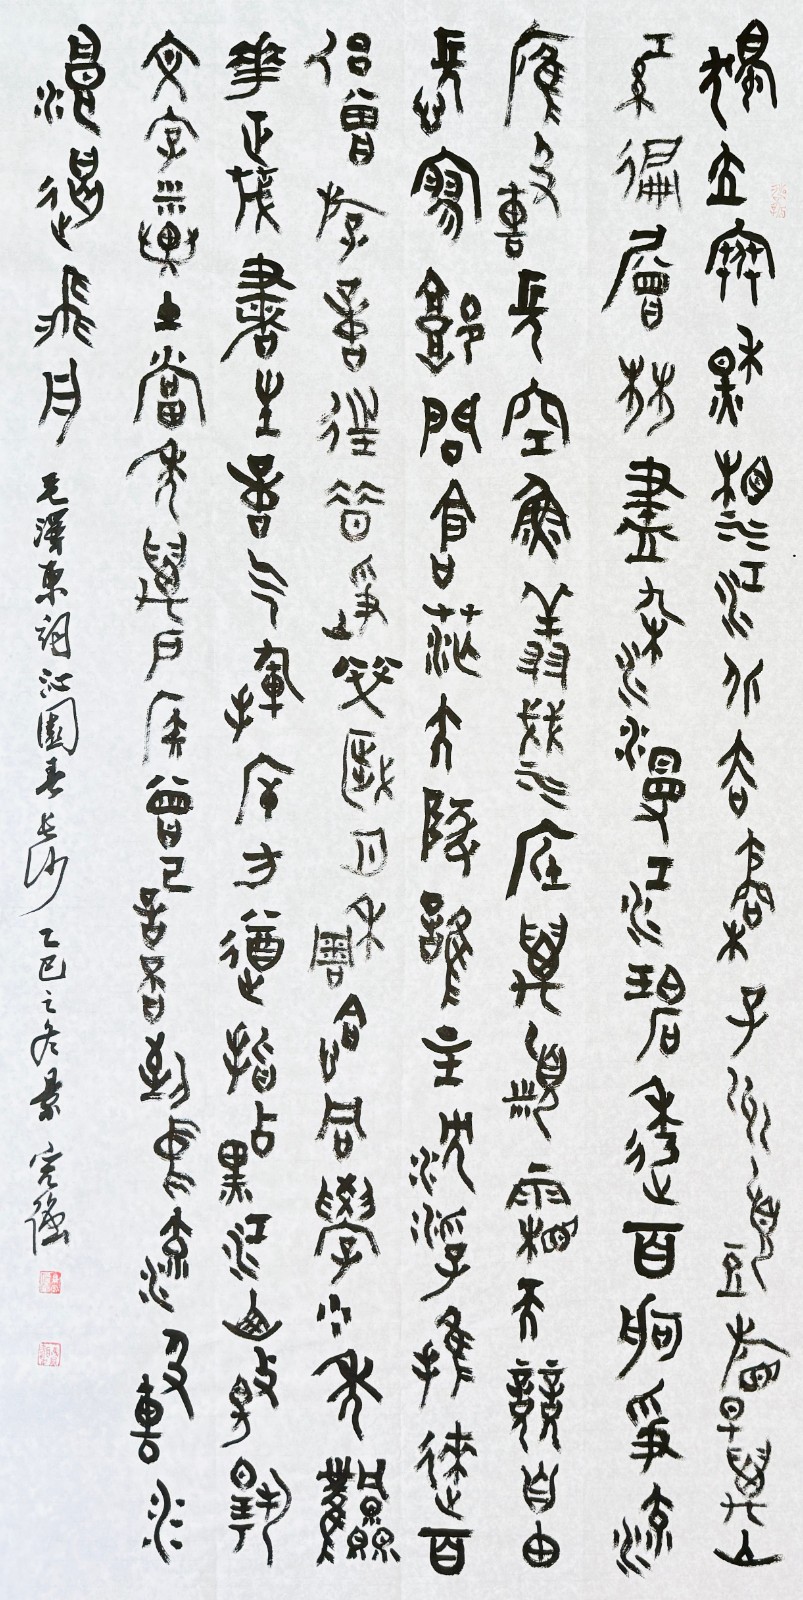 獨立寒秋湘江北去橘子洲頭看萬山
紅遍層林盡染漫江碧透百舸爭流
鷹擊長空魚翔淺底萬類霜天競自由
悵寥廓問蒼茫大地誰主沉浮攜來百
侶曾游憶往昔崢嶸歲月稠恰同學少年風
華正茂書生意氣揮斥方遒指點江山激揚
文字糞土當年萬戶侯曾記否到中流擊水
浪遏飛舟 毛澤東詞沁園春長沙 乙巳之冬景